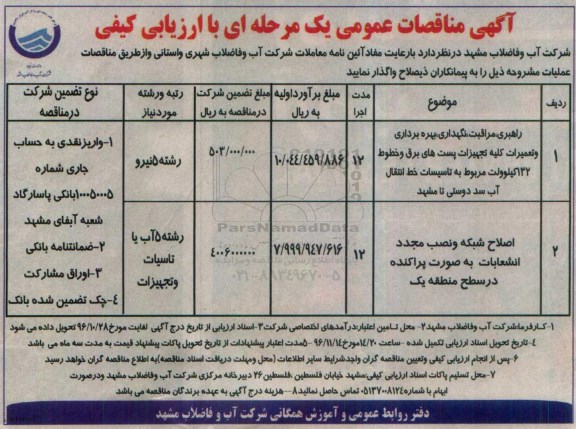 آگهی مناقصات عمومی یک مرحله ای با ارزیابی کیفی
شرکت آب وفاضلاب مشهد درنظردارد بارعایت مفادآئین نامه معاملات شرکت آب وفاضلاب شهری واستانی وازطریق مناقصات
عملیات مشروحه ذیل را به پیمانکاران ذیصلاح واگذار نمایید
ردیف
موضوع
مدت اجرا
مبلغ برآورداولیه به ریال
مبلغ تضمین شرکت درمناقصه به ریال
رتبه ورشته موردنیاز
نوع تضمین شرکت درمناقصه
۱
راهبری،مراقبت،نگهداری،بهره برداری
وتعمیرات کلیه تجهیزات پست های برق وخطوط
۱۳۲کیلوولت مربوط به تاسیسات خط انتقال
آب سد دوستی تا مشهد
۱۲
۱۰/۰۴۴/۴۵۹/۸۸۶
۵۰۳/۰۰۰/۰۰۰
رشته۵نیرو
۲
اصلاح شبکه ونصب مجدد
انشعابات به صورت پراکنده
درسطح منطقه یک
۱۲
۷/۹۹۹/۹۴۷/۶۱۶
۴۰۰۶۰۰۰۰۰۰
رشته۵آب یا
تاسیات
وتجهیزات
۱-واریزنقدی به حساب
جاری شماره
۱۰۰۵۰۰۰۵بانکی پاسارگاد
شعبه آبفای مشهد
۲-ضمانتنامه بانکی
۳-اوراق مشارکت
۴-چک تضمین شده بانک
ParsNamadData
۰۲۱-۸۸۳۴۹۶۷۰-۵
۱-کارفرما:شرکت آب وفاضلاب مشهد۲- محل تامین اعتبار:درآمدهای اختصاصی شرکت۳-اسناد ارزیابی از تاریخ درج آگهی لغایت مورخ۹۶/۱۰/۲۸ تحویل داده می شود
۴-تاریخ تحویل اسناد ارزیابی تکمیل شده -ساعت ۱۴/۲۰مورخ۹۶/۱۱/۱۴ ۵-مدت اعتبار پیشنهادات از تاریخ تحویل پاکات پیشنهاد قیمت به مدت سه ماه می باشد
۶-پس از انجام ارزیابی کیفی وتعیین مناقصه گران واجدشرایط سایر اطلاعات (محل ومهلت دریافت اسناد مناقصه)به اطلاع مناقصه گران خواهد رسید
۷-محل تسلیم پاکات اسناد ارزیابی کیفی:مشهد خیابان فلسطین ،فلسطین۲۶ دبیرخانه مرکزی شرکت آب وفاضلاب مشهد ودرصورت
ابهام با شماره۰۵۱۳۷۰۰۸۱۲۴ تماس حاصل نمائید۸-هزینه درج آگهی به عهده برندگان مناقصه می باشد
دفتر روابط عمومی و آموزش همگانی شرکت آب و فاضلاب مشهد